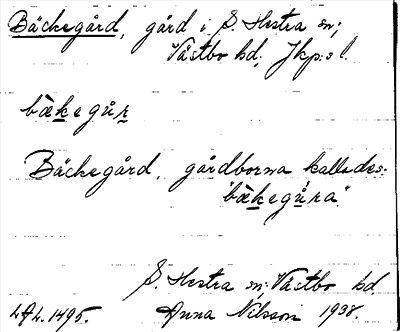 Bäckegård, gård i S. Hestra sn;
Västbo hd, Jkp:s l.
bäkegår
Bäckegård, gårdborna kallades:
"bäkegåra".
S. Hestra sn; Västbo hd.
LAL. 1495. Anna Nilsson 1938.